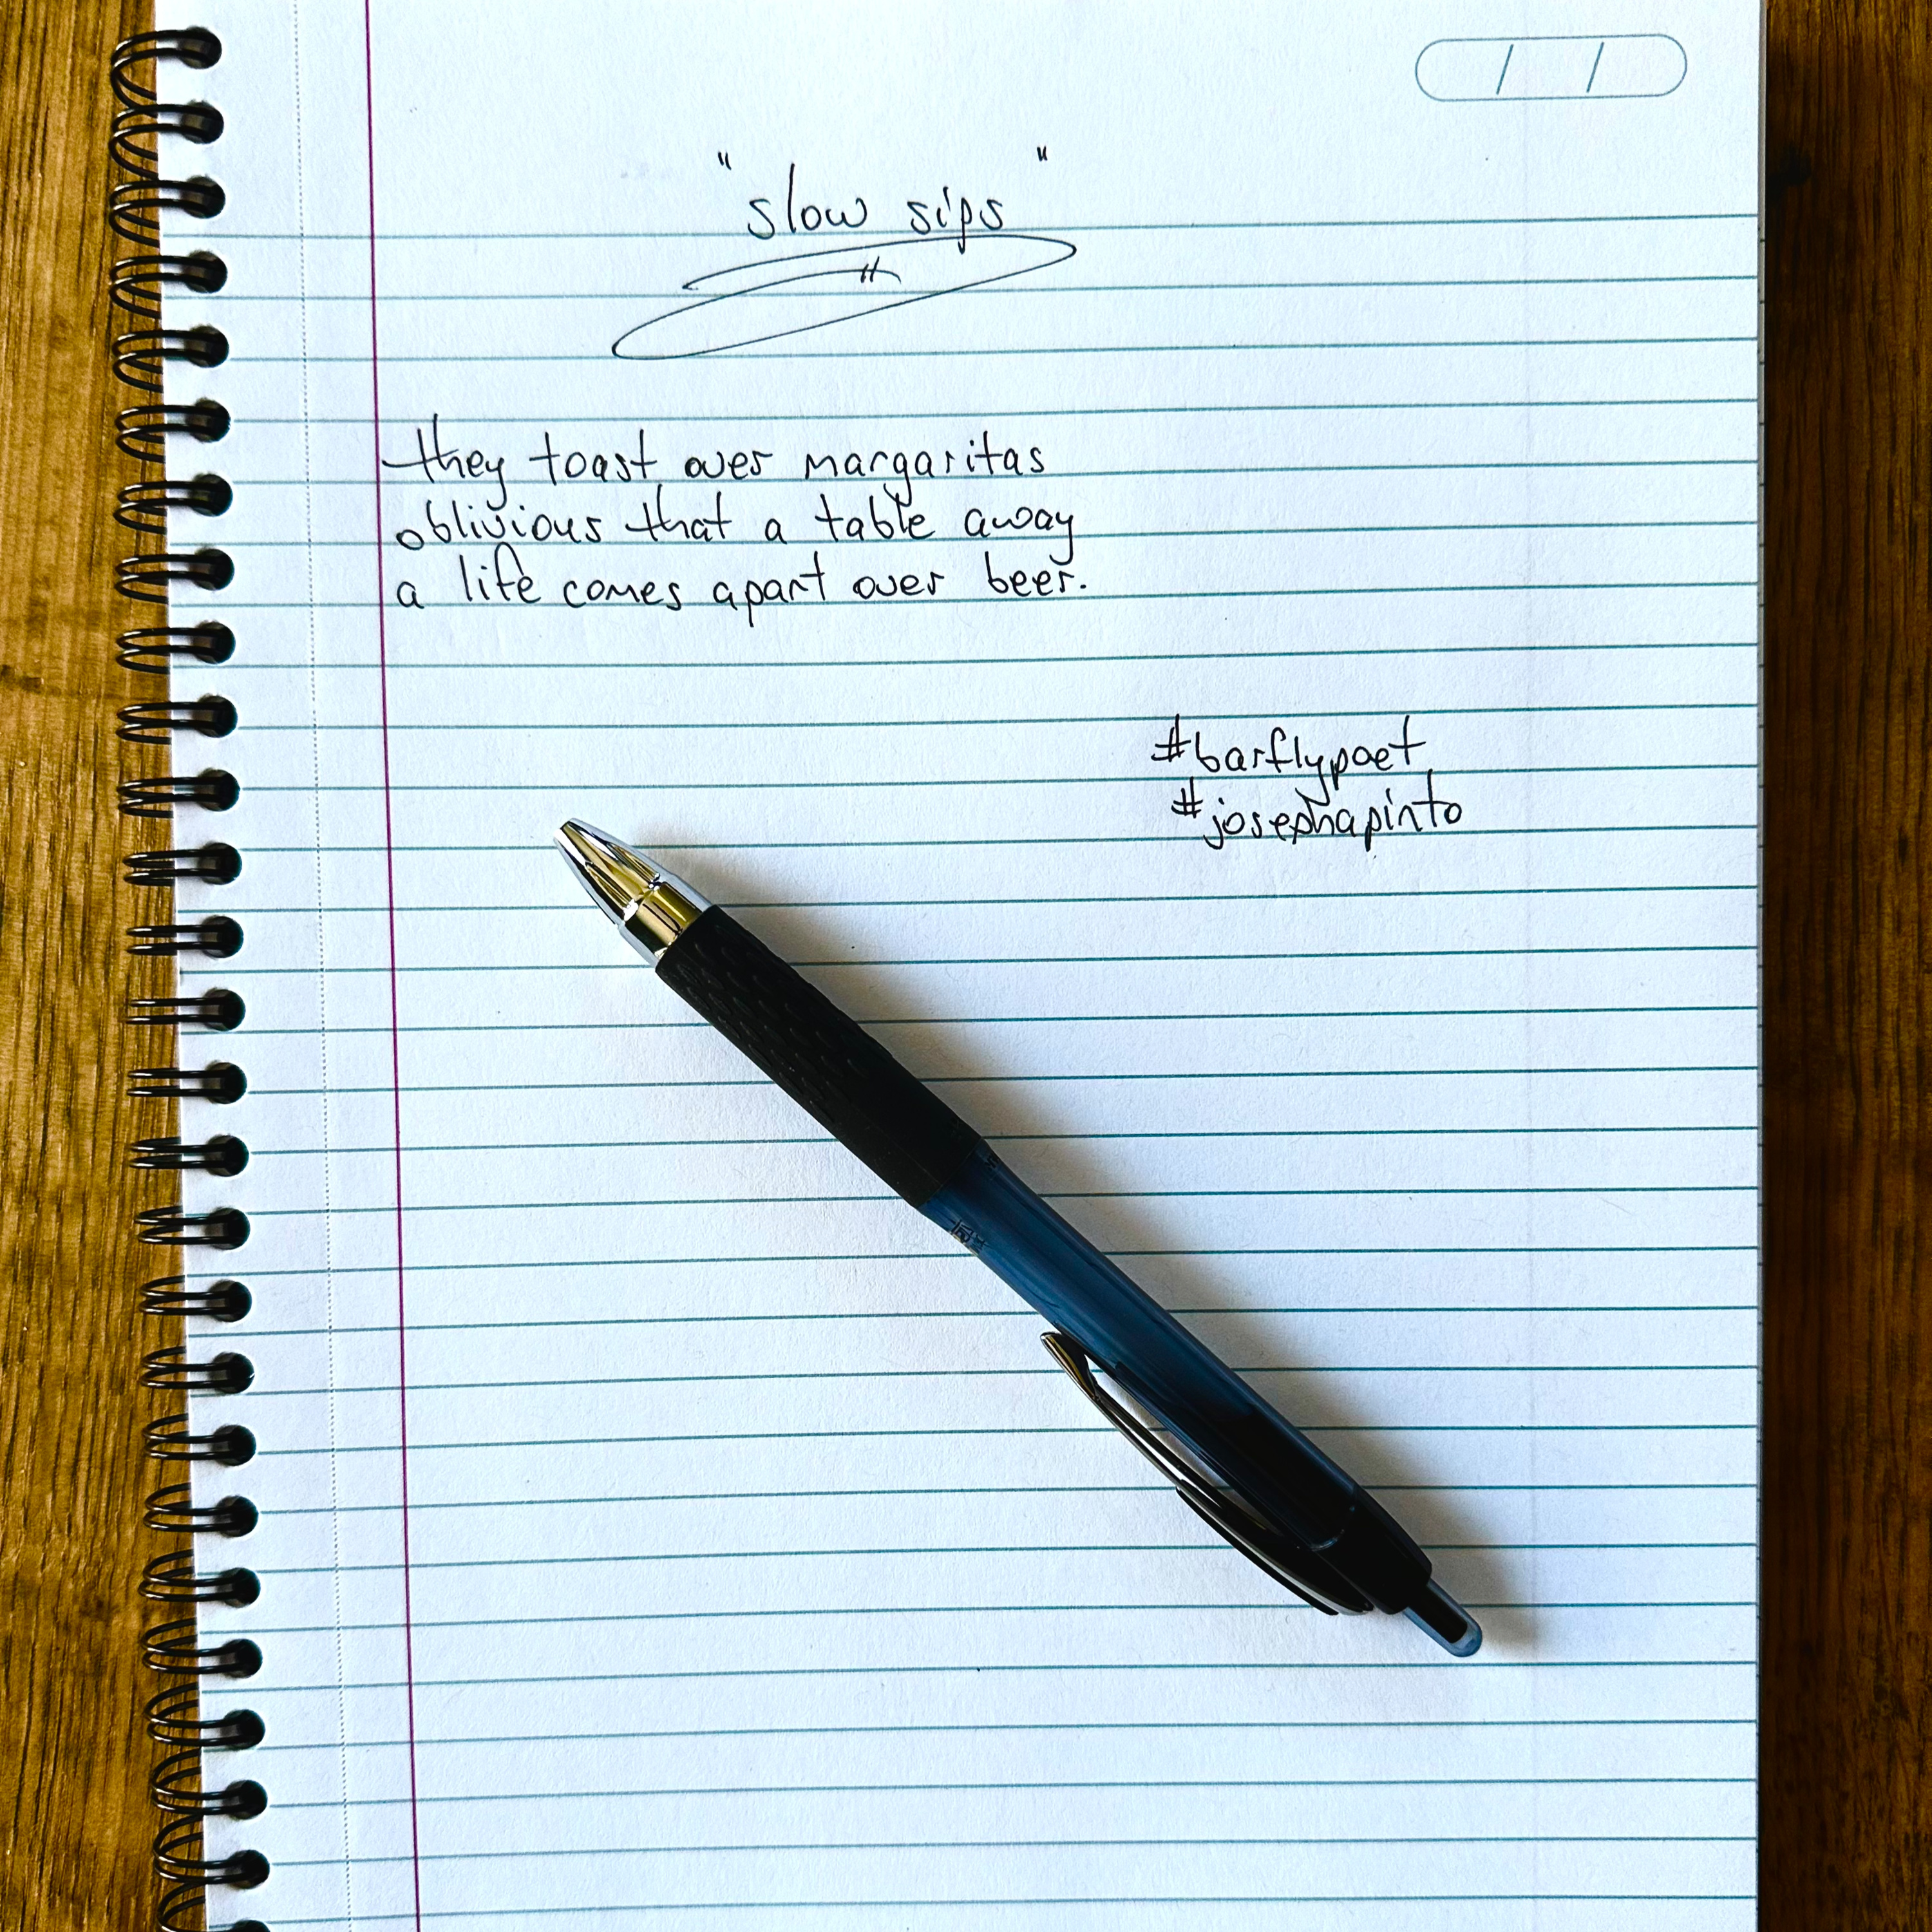 "slow sips"
they toast over margaritas
oblivious that a table away
a life comes apart over beer.
#barflypoet
#josephapinto